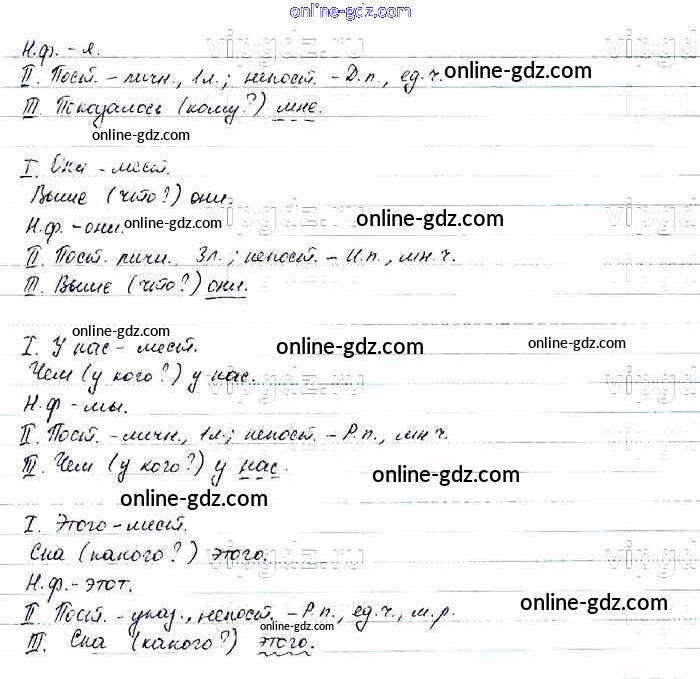 online-gdz.com
Н.ф. - я.
II. Пост. - личн., 1л.; непост. - Д.п., ед.ч. online-gdz.com
III. Показалось (кому?) мне.
online-gdz.com
I. Они - мест.
Выше (что?) они.
Н.ф. - они. online-gdz.com online-gdz.com
II. Пост. личн., 3л.; непост. - И.п., мн.ч.
III. Выше (что?) они.
online-gdz.com
I. У нас - мест. online-gdz.com online-gdz.com
Чем (у кого?) у нас. vipgdz.ru vipgdz
Н.ф - мы.
II. Пост. - личн., 1л.; непост. - Р.п., мн.ч.
III. Чем (у кого?) у нас. online-gdz.com
online-gdz.com
I. Этого - мест.
Сна (какого?) этого. vipgdz.ru vipgdz
Н.ф. - этот.
II. Пост. - указ., непост. - Р.п., ед.ч., м.р. online-gdz.com
online-gdz.com
III. Сна (какого?) этого.